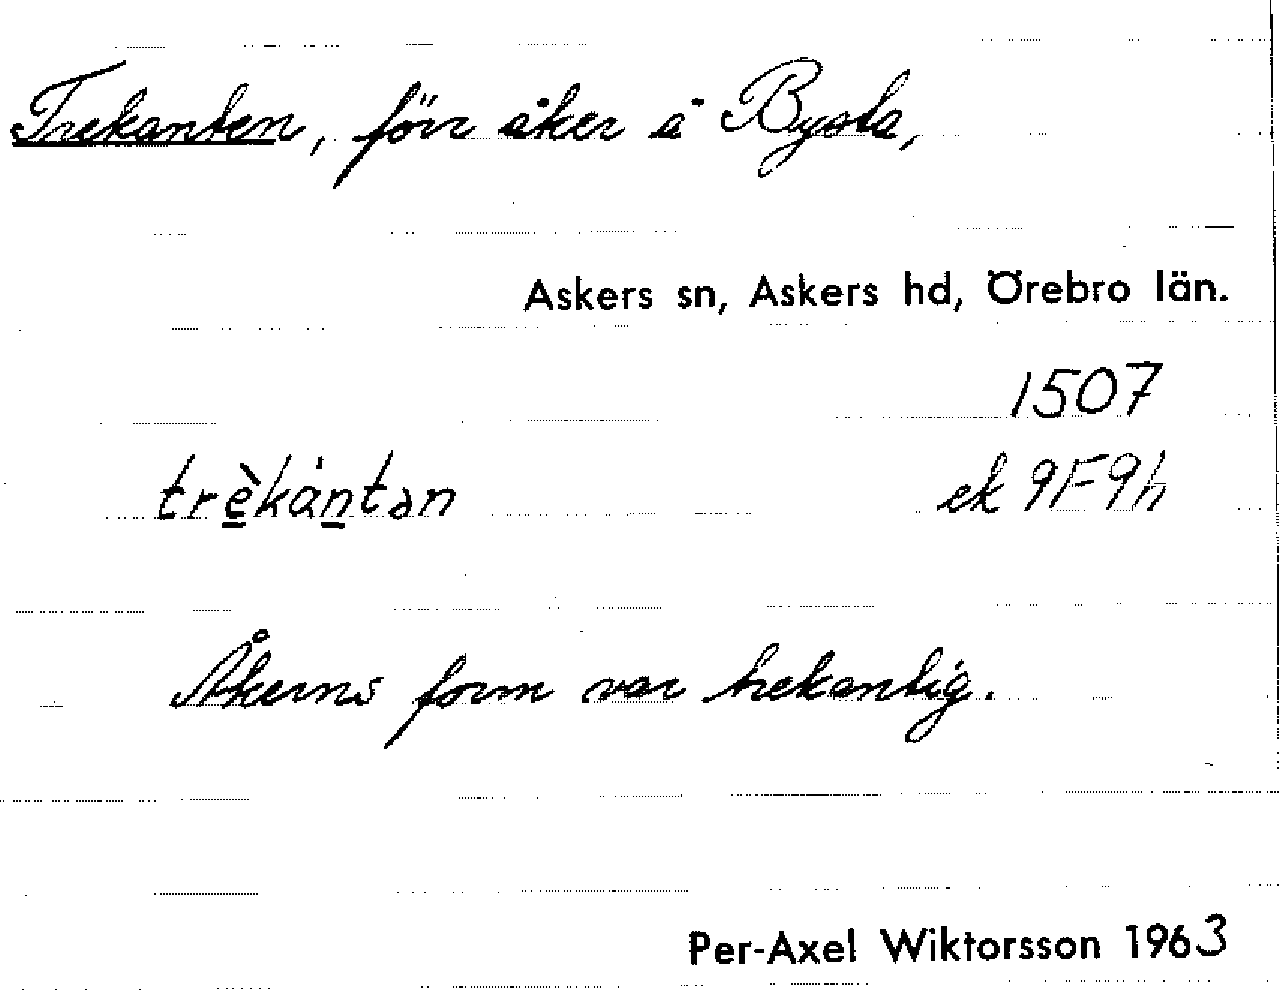 Trekanten, förr åker å Bysta,
Askers sn, Askers hd, Örebro län.
1507
trèkȧntən
ek 9F9h
Åkerns form var trekantig.
Per-Axel Wiktorsson 1963